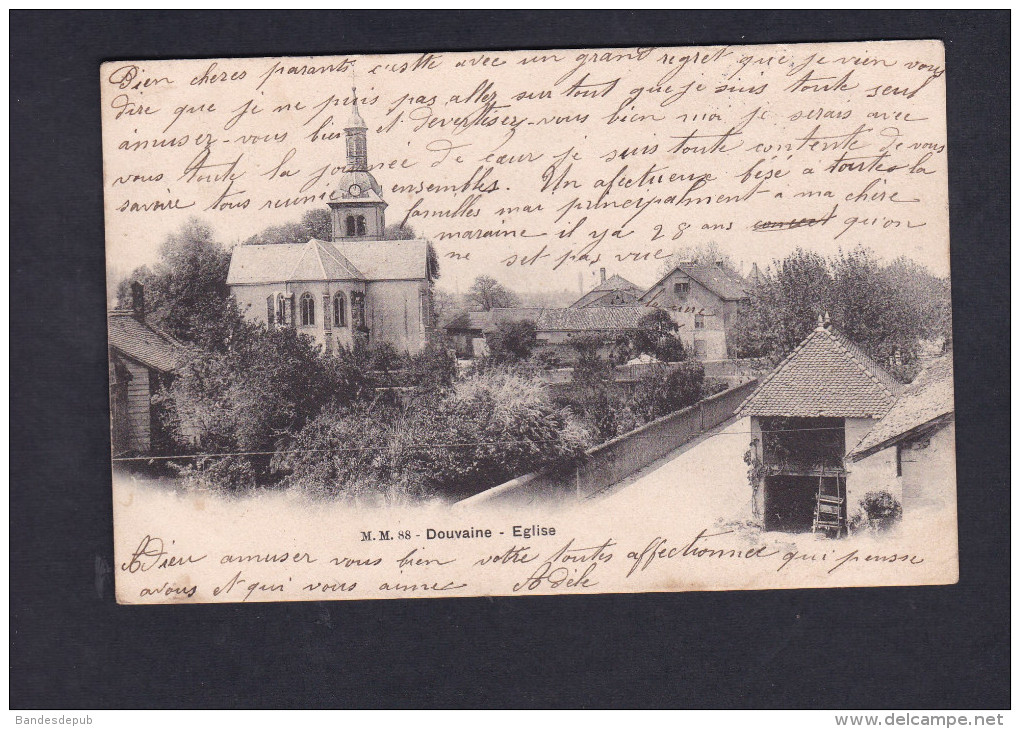 Bien cheres parants c'estte avec un grand regret que je vien vous
dire que je ne puis pas allez surtout que je suis toute seul
amusez-vous bien et devertisez-vous bien moi je serais avec
vous toute la journée de cœur je suis toute contente de vous
savoire tous reunie ensembles. Un afectueux bésé a toutes la
familles mai principalment a ma chère
maraine il ya 28 ans qu'on
ne set pas vue
M.M. 88 - Douvaine - Eglise
Adieu amuser vous bien votre toutes affectionnee qui pensse
avous et qui vous aime Adèle
Bandesdepub
www.delcampe.net